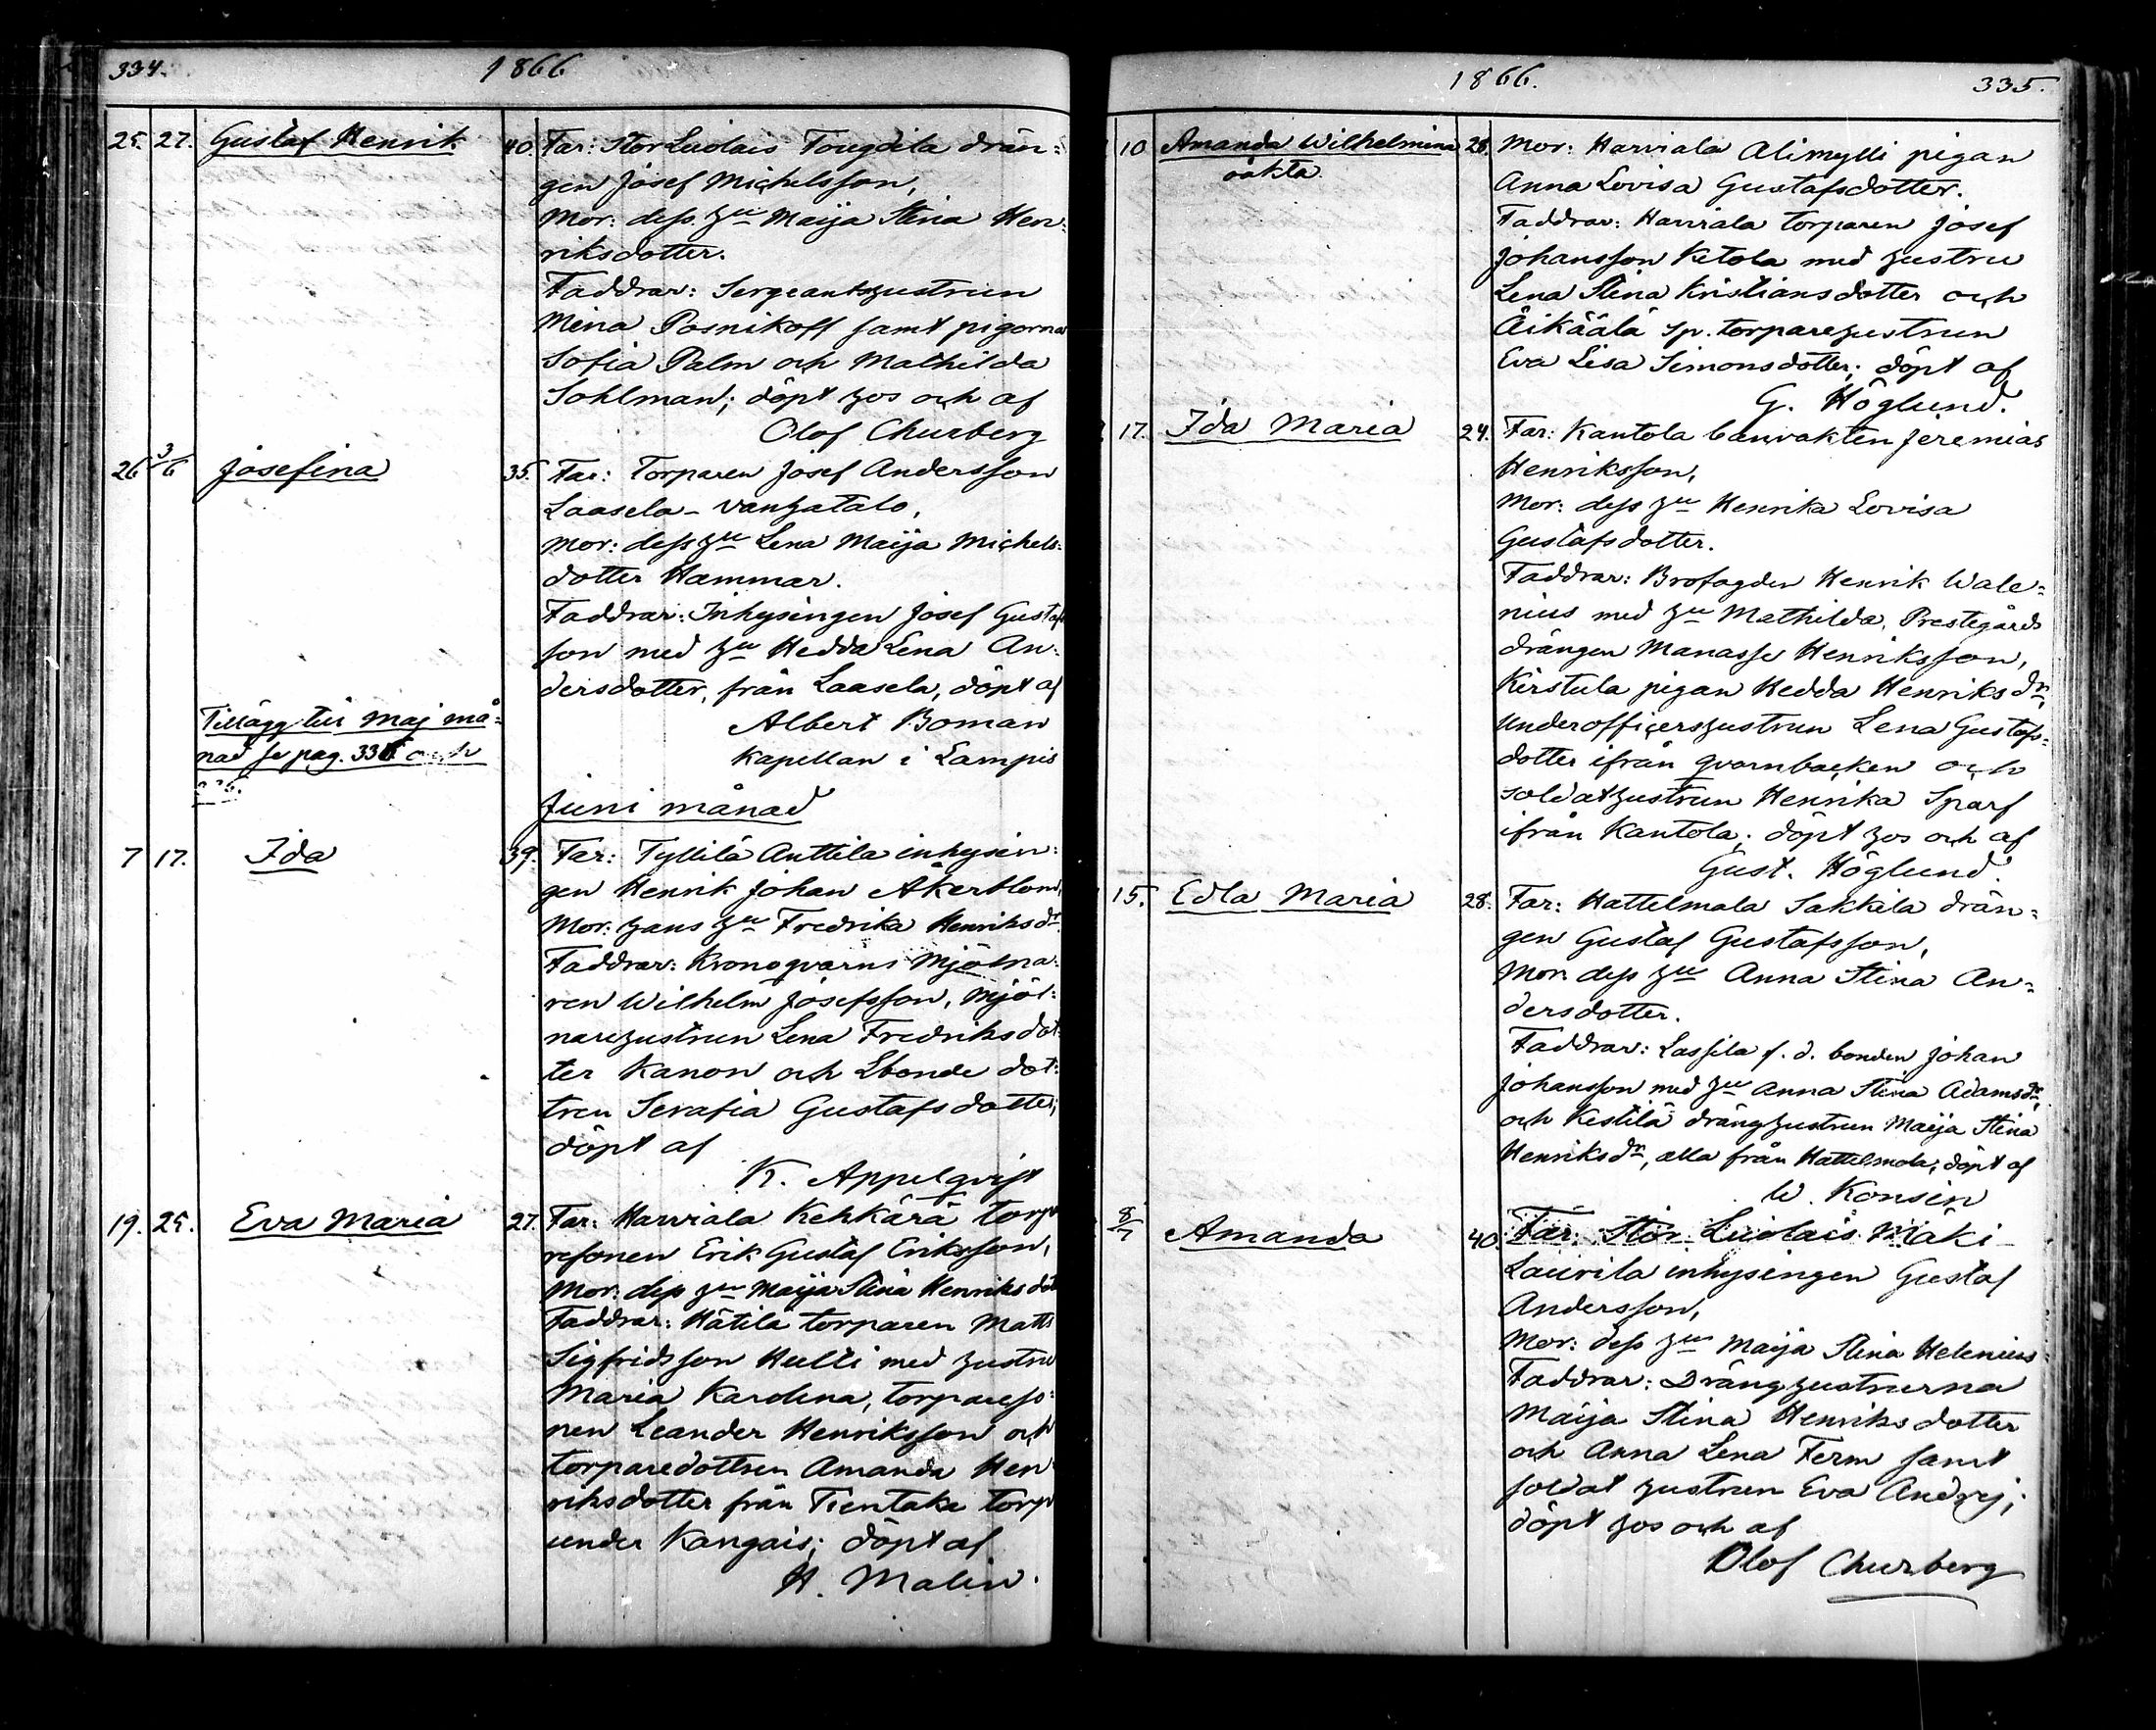 334.
1866
25. 27. Gustaf Henrik 40. Far: Stor Luolais Tougdila drän=
gen Josef Michelsson,
Mor: dess hu Maija Stina Hen=
riksdotter.
Faddrar: Sergeantshustrun
Mina Posnikoff samt pigorna
Sofia Palm och Mathilda
Sohlman; döpt hos och af
Olof Churberg
26 3/6 Josefina 35. Far: Torparen Josef Andersson
Laasela - Vanhatalo,
Mor: dess hu Lena Maija Michels=
dotter Hammar.
Faddrar: Inhysingen Josef Gustaf
son med hu Hedda Lena An=
dersdotter, från Laasela, döpt af
Albert Boman
Kapellan i Lampis
Tillägg till Maj må=
nad se pag. 335 och
336.
Juni månad
7 17. Ida 39. Far: Tyllilä Anttila inhysin=
gen Henrik Johan Åkerblom,
Mor: hans hu Fredrika Henriksdr
Faddrar: Kronoqvarns Mjölna=
ren Wilhelm Josefsson, Mjöl=
narehustrun Lena Fredriksdot=
ter Kanon och Lbonde dot=
tren Serafia Gustafsdotter;
döpt af
K. Appelqvist
19. 25. Eva Maria 27. Far: Harviala Kehkärä torpa
resonen Erik Gustaf Eriksson,
Mor: dess hu Maija Stina Henriksdot
Faddrar: Hätila torparen Matts
Sigfridsson Hulli med hustru
Maria Karolina, torpareso=
nen Leander Henriksson och
torparedottren Amanda Hen
riksdotter från Tientaka torp
under Kangais; döpt af
H. Malin.
1866.
335.
10 Amanda Wilhelmina 28. Mor: Harviala Alimylli pigan
oäkta.
Anna Lovisa Gustafsdotter.
Faddrar: Harviala torparen Josef
Johansson Ketola med hustru
Lena Stina Kristiansdotter och
Äikäälä sp. torparehustrun
Eva Lisa Simonsdotter; döpt af
G. Höglund.
17. Ida Maria 24. Far: Kantola banvakten Jeremias
Henriksson,
Mor: dess hu Henrika Lovisa
Gustafsdotter.
Faddrar: Brofogden Henrik Wale=
nius med hu Mathilda, Prestegårds
drängen Manasse Henriksson,
Kirstula pigan Hedda Henriksdr,
Underofficershustrun Lena Gustafs=
dotter ifrån qvarnbacken och
soldathustrun Henrika Sparf
ifrån Kantola; döpt hos och af
Gust. Höglund.
15. Edla Maria 28. Far: Hattelmala Sakkila drän=
gen Gustaf Gustafsson,
Mor: dess hu Anna Stina An=
dersdotter.
Faddrar: Lassila f. d. bonden Johan
Johansson med hu Anna Stina Adamsdr,
och Kestilä dränghustrun Maija Stina
Henriksdr, alla från Hattelmala; döpt af
W. Konsin
8/7 Amanda 40. Far: Stor Luolais Mäki-
Laurila inhysingen Gustaf
Andersson,
Mor: dess hu Maija Stina Helenius
Faddrar: Dränghustrurna
Maija Stina Henriksdotter
och Anna Lena Ferm samt
soldat hustrun Eva Andrej;
döpt hos och af
Olof Churberg